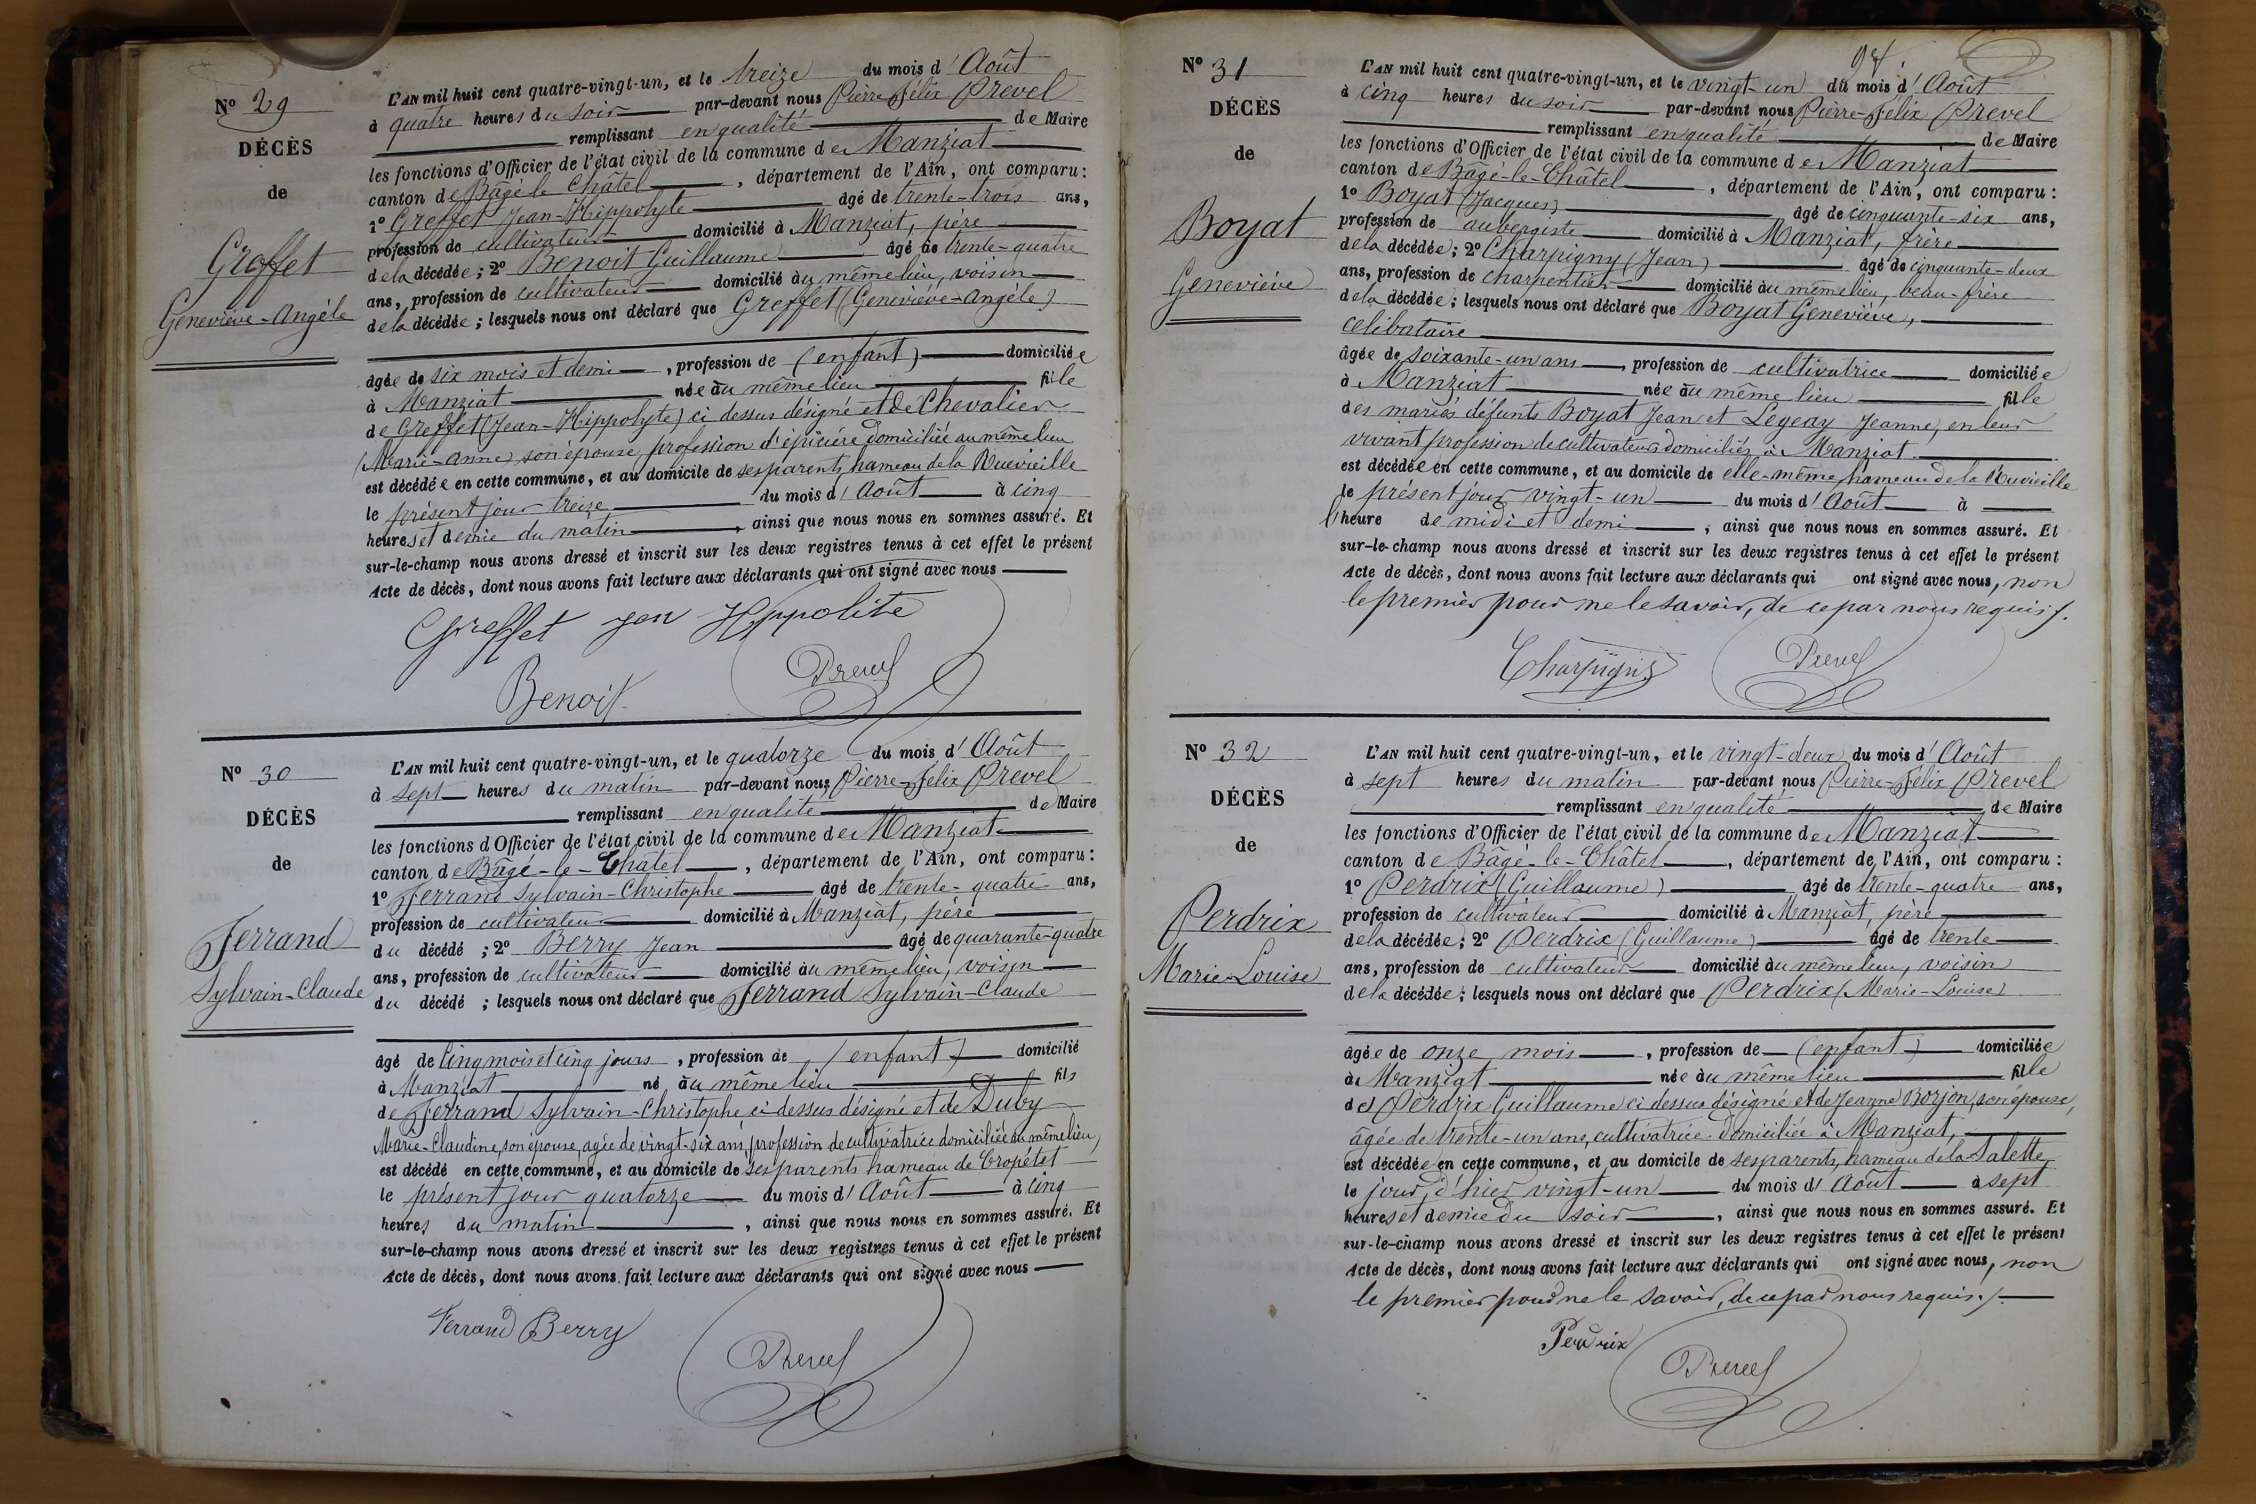 Nº 29
DÉCÈS
de
Greffet
Geneviève-Angèle
L'AN mil huit cent quatre-vingt-un, et le treize du mois d'Août
à quatre heures du soir par-devant nous Pierre Félix Prevel
remplissant en qualité de Maire
les fonctions d'Officier de l'état civil de la commune de Manziat
canton de Bâgé-le-Châtel, département de l'Ain, ont comparu:
1º Greffet Jean-Hippolyte âgé de trente-trois ans,
profession de cultivateur domicilié à Manziat, père
de la décédée; 2º Benoit Guillaume âgé de trente-quatre
ans, profession de cultivateur domicilié au même lieu, voisin
de la décédée; lesquels nous ont déclaré que Greffet (Geneviève-Angèle)
âgée de six mois et demi, profession de (enfant) domiciliée
à Manziat née au même lieu fille
de Greffet (Jean-Hippolyte) ci dessus désigné et de Chevalier
(Marie-Anne) son épouse, profession d'épicière domiciliée au même lieu
est décédée en cette commune, et au domicile de ses parents, hameau de la Ruevieille
le présent jour treize du mois d'Août à cinq
heures et demie du matin, ainsi que nous nous en sommes assuré. Et
sur-le-champ nous avons dressé et inscrit sur les deux registres tenus à cet effet le présent
Acte de décès, dont nous avons fait lecture aux déclarants qui ont signé avec nous
Greffet jen Hyppolite
Benoit
Prevel
Nº 30
DÉCÈS
de
Ferrand
Sylvain-Claude
L'AN mil huit cent quatre-vingt-un, et le quatorze du mois d'Août
à sept heures du matin par-devant nous Pierre-Félix Prevel
remplissant en qualité de Maire
les fonctions d'Officier de l'état civil de la commune de Manziat
canton de Bâgé-le-Châtel, département de l'Ain, ont comparu:
1º Ferrand Sylvain-Christophe âgé de trente-quatre ans,
profession de cultivateur domicilié à Manziat, père
du décédé; 2º Berry Jean âgé de quarante-quatre
ans, profession de cultivateur domicilié au même lieu, voisin
du décédé; lesquels nous ont déclaré que Ferrand Sylvain-Claude
âgé de cinq mois et cinq jours, profession de (enfant) domicilié
à Manziat né au même lieu fils
de Ferrand Sylvain-Christophe ci dessus désigné et de Duby
Marie-Claudine, son épouse, agée de vingt-six ans, profession de cultivatrice domiciliée au même lieu,
est décédé en cette commune, et au domicile de ses parents hameau de Cropétet
le présent jour quatorze du mois d'Août à cinq
heures du matin, ainsi que nous nous en sommes assuré. Et
sur-le-champ nous avons dressé et inscrit sur les deux registres tenus à cet effet le présent
Acte de décès, dont nous avons fait lecture aux déclarants qui ont signé avec nous
Ferrand Berry
Prevel
94
Nº 31
DÉCÈS
de
Boyat
Geneviève
L'AN mil huit cent quatre-vingt-un, et le vingt-un du mois d'Août
à cinq heures du soir par-devant nous Pierre-Félix Prevel
remplissant en qualité de Maire
les fonctions d'Officier de l'état civil de la commune de Manziat
canton de Bâgé-le-Châtel, département de l'Ain, ont comparu:
1º Boyat (Jacques) âgé de cinquante-six ans,
profession de aubergiste domicilié à Manziat, frère
de la décédée; 2º Charpigny (Jean) âgé de cinquante-deux
ans, profession de charpentier domicilié au même lieu, beau-frère
de la décédée; lesquels nous ont déclaré que Boyat Geneviève,
celibataire
âgée de soixante-un ans, profession de cultivatrice domiciliée
à Manziat née au même lieu fille
des mariés défunts Boyat Jean et Legeay Jeanne, en leur
vivant profession de cultivateurs domiciliés à Manziat
est décédée en cette commune, et au domicile de elle-même, hameau de la Ruevieille
le présent jour vingt-un du mois d'Août à
l'heure de midi et demi, ainsi que nous nous en sommes assuré. Et
sur-le-champ nous avons dressé et inscrit sur les deux registres tenus à cet effet le présent
Acte de décès, dont nous avons fait lecture aux déclarants qui ont signé avec nous, non
le premier pour ne le savoir, de ce par nous requis /.
Charpigny
Prevel
Nº 32
DÉCÈS
de
Perdrix
Marie-Louise
L'AN mil huit cent quatre-vingt-un, et le vingt-deux du mois d'Août
à sept heures du matin par-devant nous Pierre-Félix Prevel
remplissant en qualité de Maire
les fonctions d'Officier de l'état civil de la commune de Manziat
canton de Bâgé-le-Châtel, département de l'Ain, ont comparu:
1º Perdrix (Guillaume) âgé de trente-quatre ans,
profession de cultivateur domicilié à Manziat, père
de la décédée; 2º Perdrix (Guillaume) âgé de trente
ans, profession de cultivateur domicilié au même lieu, voisin
de la décédée; lesquels nous ont déclaré que Perdrix (Marie-Louise)
âgée de onze mois, profession de (enfant) domiciliée
à Manziat née au même lieu fille
de Perdrix Guillaume ci dessus désigné et de Jeanne Borjon, son épouse,
âgée de trente-un ans, cultivatrice domiciliée à Manziat,
est décédée en cette commune, et au domicile de ses parents, hameau de la Salette
le jour d'hier vingt-un du mois d'Août à sept
heures et demie du soir, ainsi que nous nous en sommes assuré. Et
sur-le-champ nous avons dressé et inscrit sur les deux registres tenus à cet effet le présent
Acte de décès, dont nous avons fait lecture aux déclarants qui ont signé avec nous, non
le premier pour ne le savoir, de ce par nous requis. /.
Perdrix
Prevel